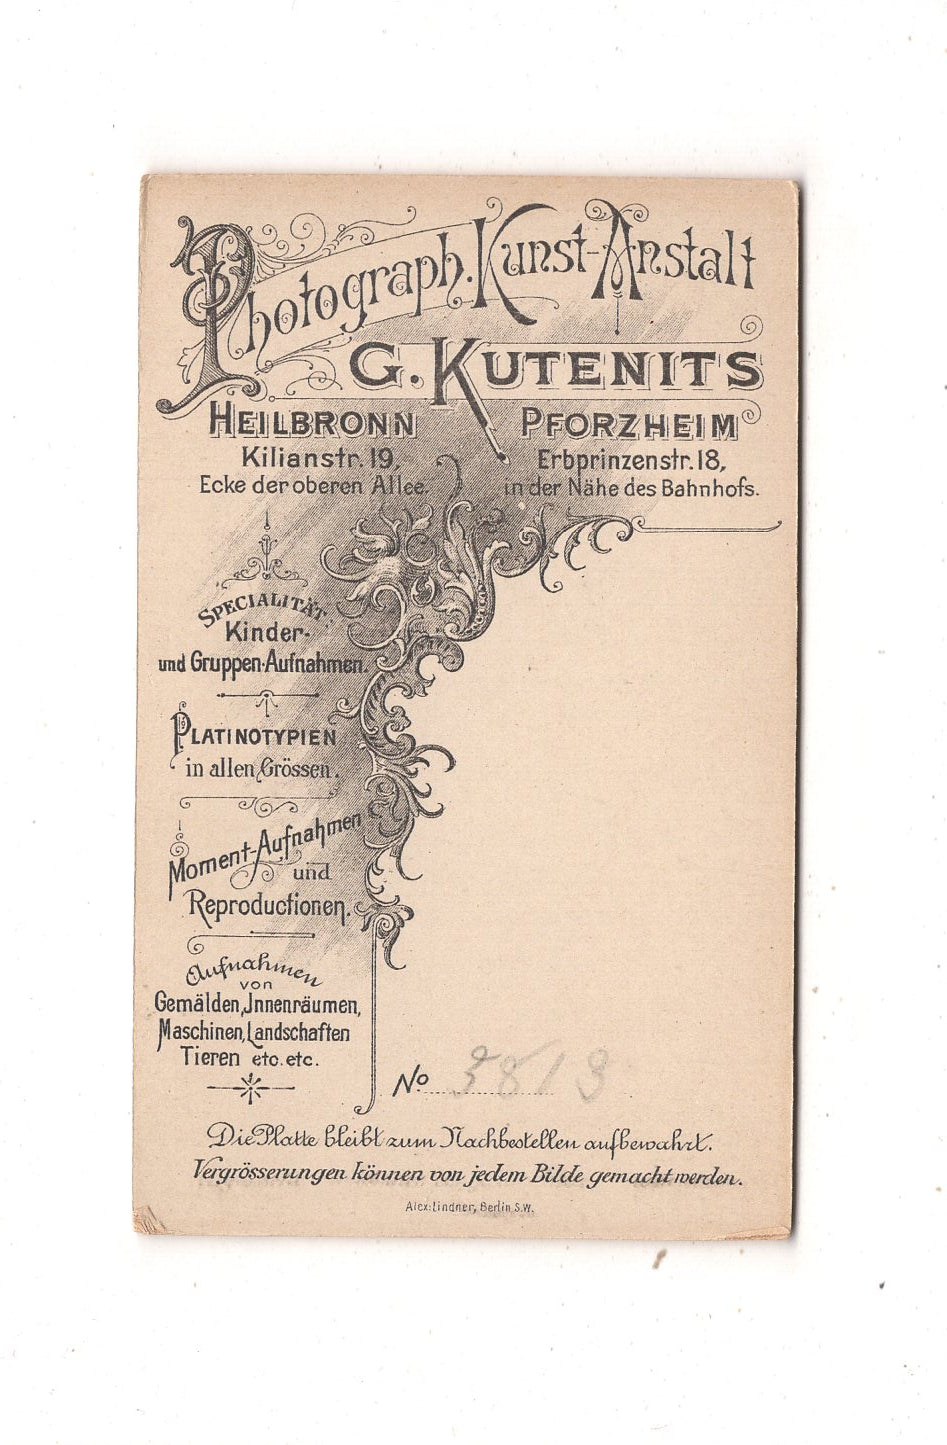 Photograph. Kunst-Anstalt
G. KUTENITS
HEILBRONN
Kilianstr. 19,
Ecke der oberen Allee.
PFORZHEIM
Erbprinzenstr. 18,
in der Nähe des Bahnhofs.
SPECIALITÄT.
Kinder-
und Gruppen-Aufnahmen.
PLATINOTYPIEN
in allen Grössen.
Moment-Aufnahmen
und
Reproductionen.
Aufnahmen
von
Gemälden, Jnnenräumen,
Maschinen, Landschaften
Tieren etc. etc.
No
Die Platte bleibt zum Nachbestellen aufbewahrt.
Vergrösserungen können von jedem Bilde gemacht werden.
Alex: Lindner, Berlin S.W.